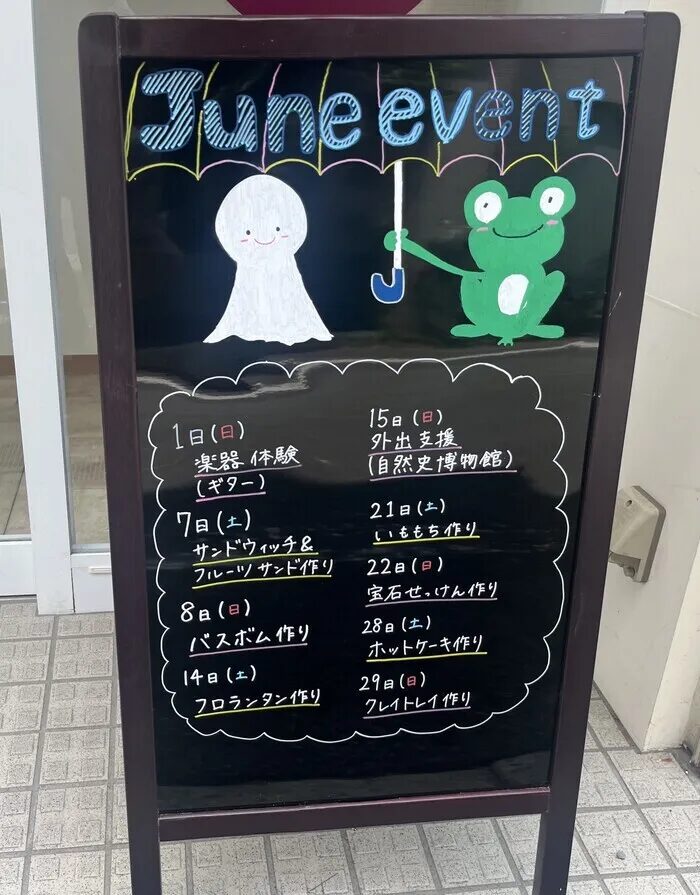 June event
1日(日)
楽器体験
(ギター)
7日(土)
サンドウィッチ&
フルーツサンド作り
8日(日)
バスボム作り
14日(土)
フロランタン作り
15日(日)
外出支援
(自然史博物館)
21日(土)
いももち作り
22日(日)
宝石せっけん作り
28日(土)
ホットケーキ作り
29日(日)
クレイトレイ作り